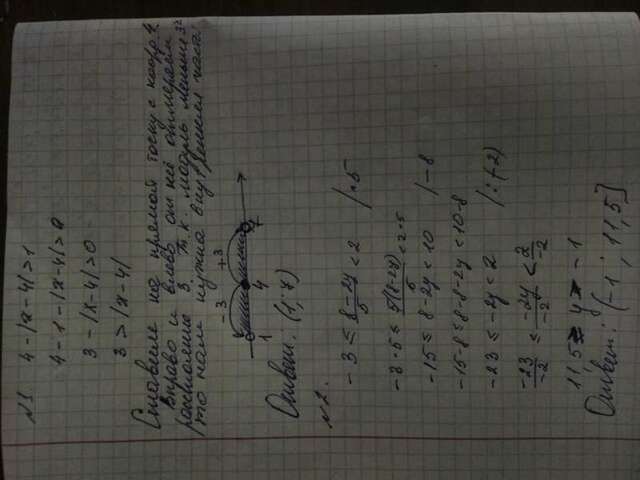 №1 4-|x-4|>1
4-1-|x-4|>0
3-|x-4|>0
3>|x-4|
Ставим на прямой точку с коорд. 4.
Вправо и влево от неё отмеряем
расстояние 3, т.к. модуль меньше 3
то нам нужна внутренняя часть.
-3 +3
1 4 7
Ответ: (1; 7)
№2.
-3 ≤ \frac{8-2y}{5} < 2 |·5
-3·5 ≤ \frac{5(8-2y)}{5} < 2·5
-15 ≤ 8-2y < 10 |-8
-15-8 ≤ 8-8-2y < 10-8
-23 ≤ -2y < 2 |:(-2)
\frac{-23}{-2} ≤ \frac{-2y}{-2} < \frac{2}{-2}
11,5 ≥ y > -1
Ответ: (-1; 11,5]